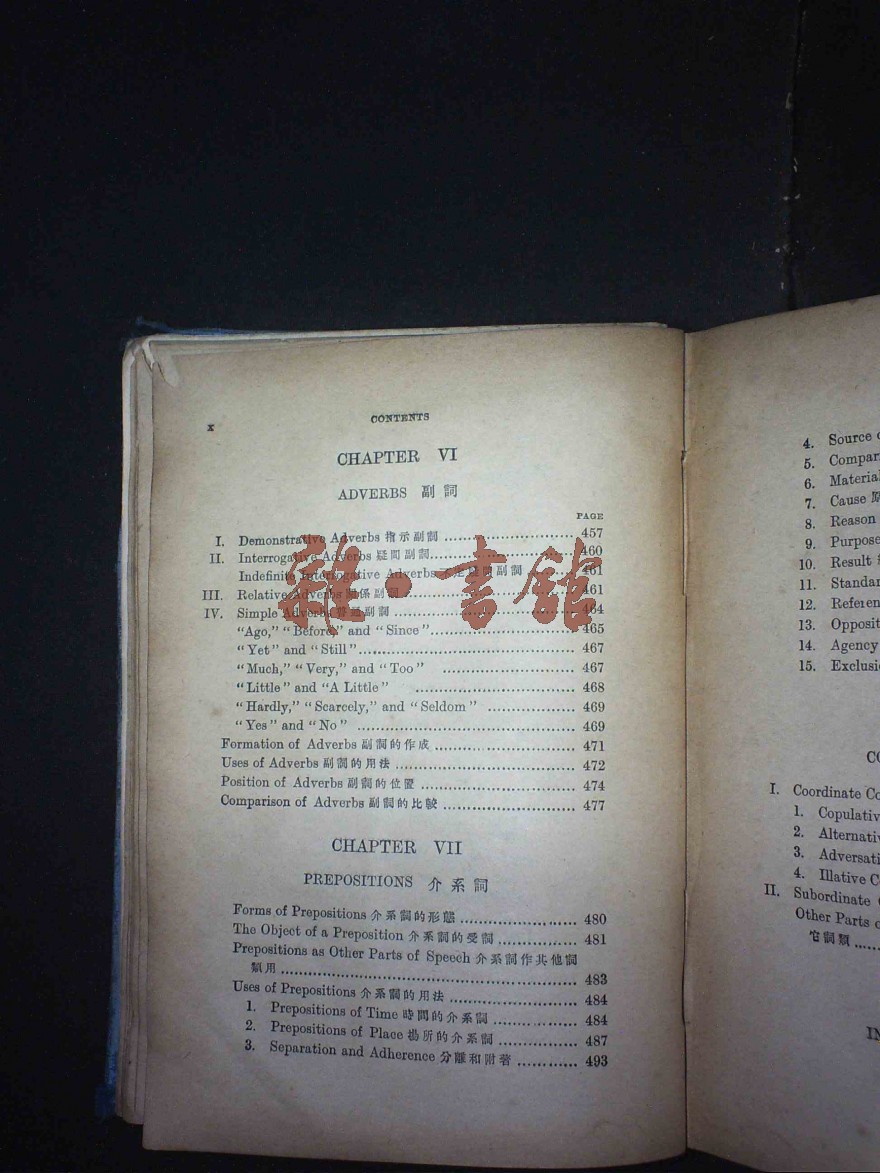 x
CONTENTS
CHAPTER VI
ADVERBS 副詞
PAGE
I. Demonstrative Adverbs 指示副詞 457
II. Interrogative Adverbs 疑問副詞 460
Indefinite Interrogative Adverbs 不定疑問副詞 461
III. Relative Adverbs 關係副詞 461
IV. Simple Adverbs 普通副詞 464
"Ago," "Before," and "Since" 465
"Yet" and "Still" 467
"Much," "Very," and "Too" 467
"Little" and "A Little" 468
"Hardly," "Scarcely," and "Seldom" 469
"Yes" and "No" 469
Formation of Adverbs 副詞的作成 471
Uses of Adverbs 副詞的用法 472
Position of Adverbs 副詞的位置 474
Comparison of Adverbs 副詞的比較 477
CHAPTER VII
PREPOSITIONS 介系詞
Forms of Prepositions 介系詞的形態 480
The Object of a Preposition 介系詞的受詞 481
Prepositions as Other Parts of Speech 介系詞作其他詞
類用 483
Uses of Prepositions 介系詞的用法 484
1. Prepositions of Time 時間的介系詞 484
2. Prepositions of Place 場所的介系詞 487
3. Separation and Adherence 分離和附著 493
雜·書館
4. Source
5. Compar
6. Material
7. Cause
8. Reason
9. Purpose
10. Result
11. Standar
12. Referen
13. Opposit
14. Agency
15. Exclusi
CO
I. Coordinate Co
1. Copulativ
2. Alternativ
3. Adversati
4. Illative C
II. Subordinate
Other Parts o
它詞類
IN